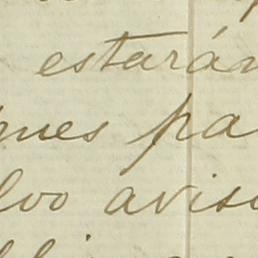 estarán
nes pa
lvo aviso